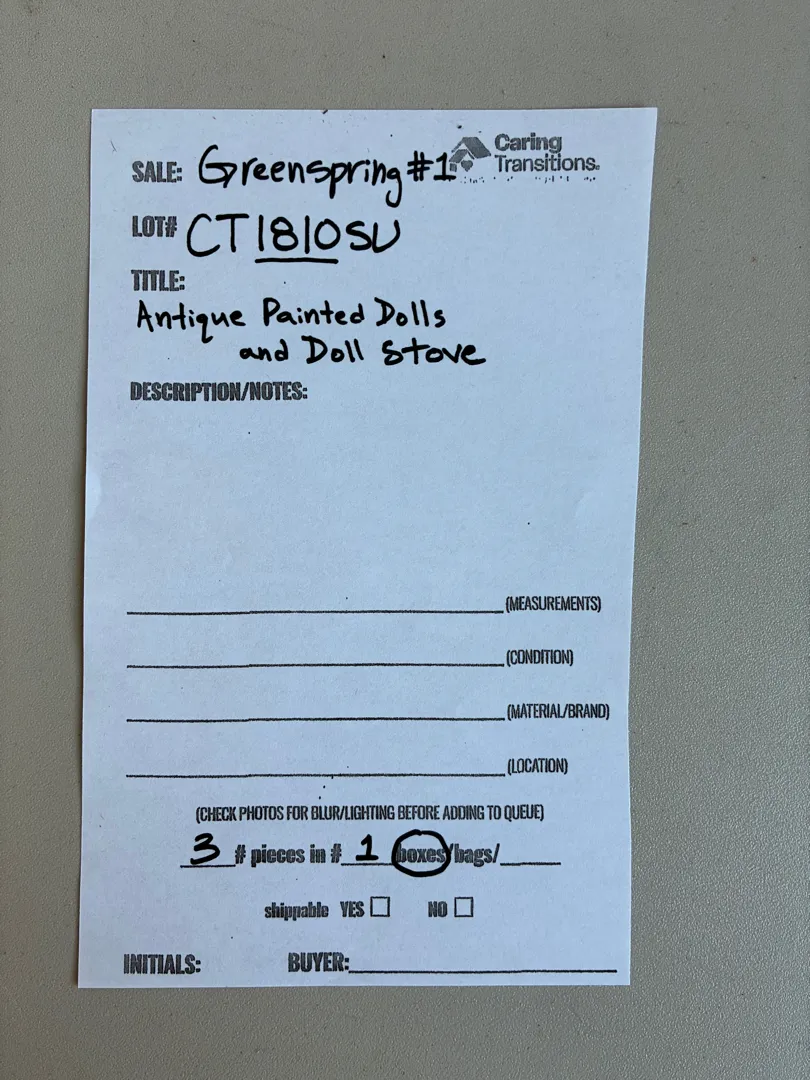 SALE: Greenspring #1
Caring
Transitions.
LOT# CT1810SU
TITLE:
Antique Painted Dolls
and Doll Stove
DESCRIPTION/NOTES:
(MEASUREMENTS)
(CONDITION)
(MATERIAL/BRAND)
(LOCATION)
(CHECK PHOTOS FOR BLUR/LIGHTING BEFORE ADDING TO QUEUE)
3 # pieces in # 1 boxes/bags/
shippable YES NO
INITIALS: BUYER: